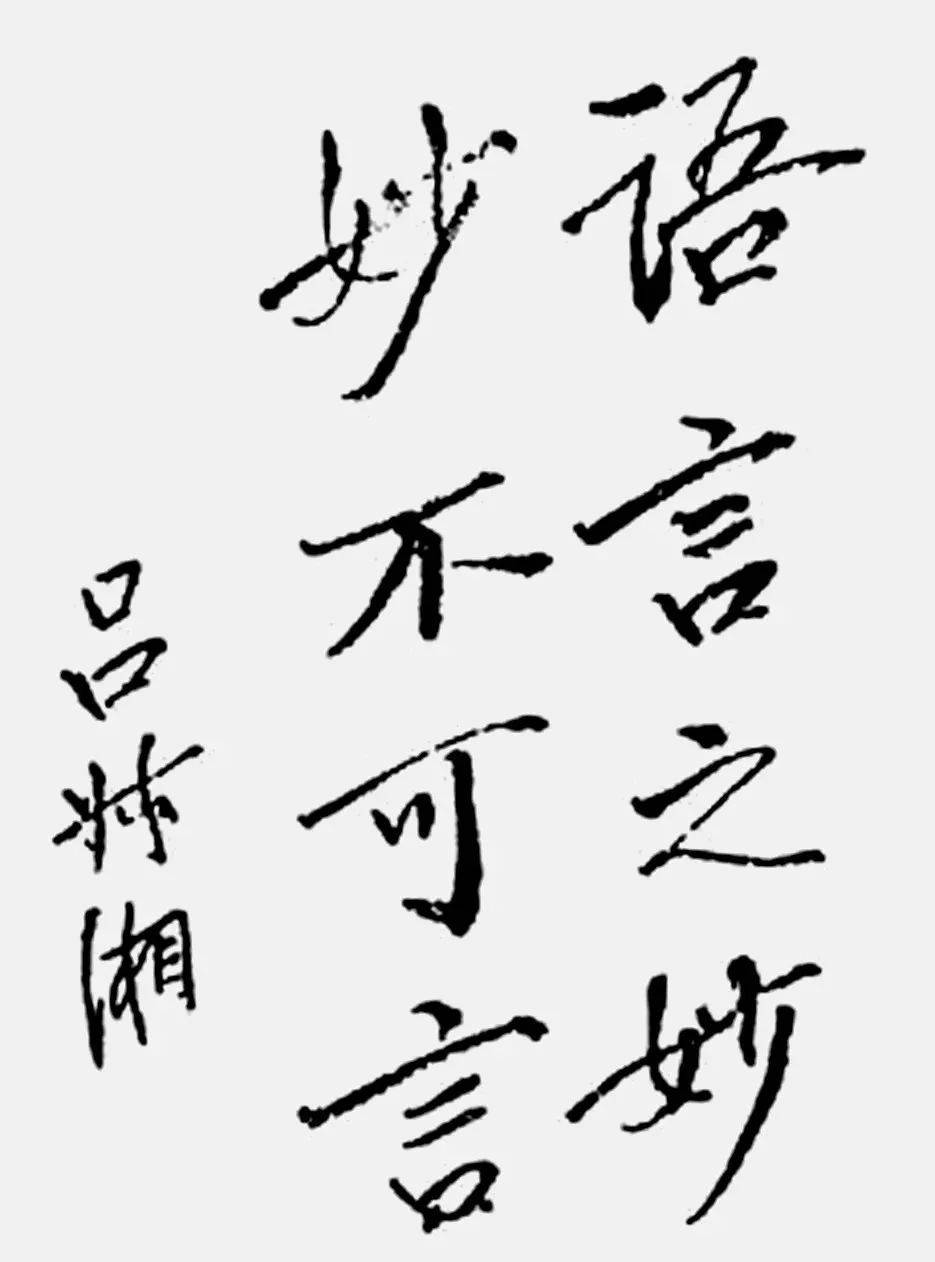 语言之妙
妙不可言
吕叔湘